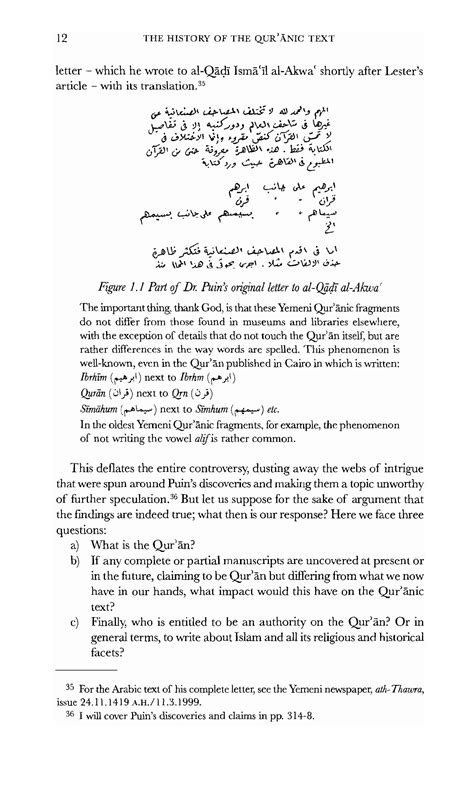 12 THE HISTORY OF THE QUR’ĀNIC TEXT
letter – which he wrote to al-Qāḍī Ismāʿīl al-Akwaʿ shortly after Lester’s
article – with its translation.³⁵
المهم والحمد لله لا تختلف المصاحف الصنعانية عن
غيرها في متاحف العالم ودور كتبه إلا في تفاصيل
لا تمس القرآن كنص مقروء وإنما الاختلاف في
الكتابة فقط. هذه الظاهرة معروفة حتى من القرآن
المطبوع في القاهرة حيث ورد كتابة
ابرهيم على جانب ابرهم
قران " " قرن
سيماهم " " بسيمهم على جانب بسيمهم
الخ
اما في اقدم المصاحف الصنعانية فتكثر ظاهرة
حذف الالفات مثلا.
Figure 1.1 Part of Dr. Puin’s original letter to al-Qāḍī al-Akwaʿ
The important thing, thank God, is that these Yemeni Qur’ānic fragments
do not differ from those found in museums and libraries elsewhere,
with the exception of details that do not touch the Qur’ān itself, but are
rather differences in the way words are spelled. This phenomenon is
well-known, even in the Qur’ān published in Cairo in which is written:
Ibrhīm (ابرهيم) next to Ibrhm (ابرهم)
Qurān (قران) next to Qrn (قرن)
Sīmāhum (سيماهم) next to Sīmhum (سيمهم) etc.
In the oldest Yemeni Qur’ānic fragments, for example, the phenomenon
of not writing the vowel alif is rather common.
This deflates the entire controversy, dusting away the webs of intrigue
that were spun around Puin’s discoveries and making them a topic unworthy
of further speculation.³⁶ But let us suppose for the sake of argument that
the findings are indeed true; what then is our response? Here we face three
questions:
a) What is the Qur’ān?
b) If any complete or partial manuscripts are uncovered at present or
in the future, claiming to be Qur’ān but differing from what we now
have in our hands, what impact would this have on the Qur’ānic
text?
c) Finally, who is entitled to be an authority on the Qur’ān? Or in
general terms, to write about Islam and all its religious and historical
facets?
³⁵ For the Arabic text of his complete letter, see the Yemeni newspaper, ath-Thawra,
issue 24.11.1419 A.H./11.3.1999.
³⁶ I will cover Puin’s discoveries and claims in pp. 314-8.